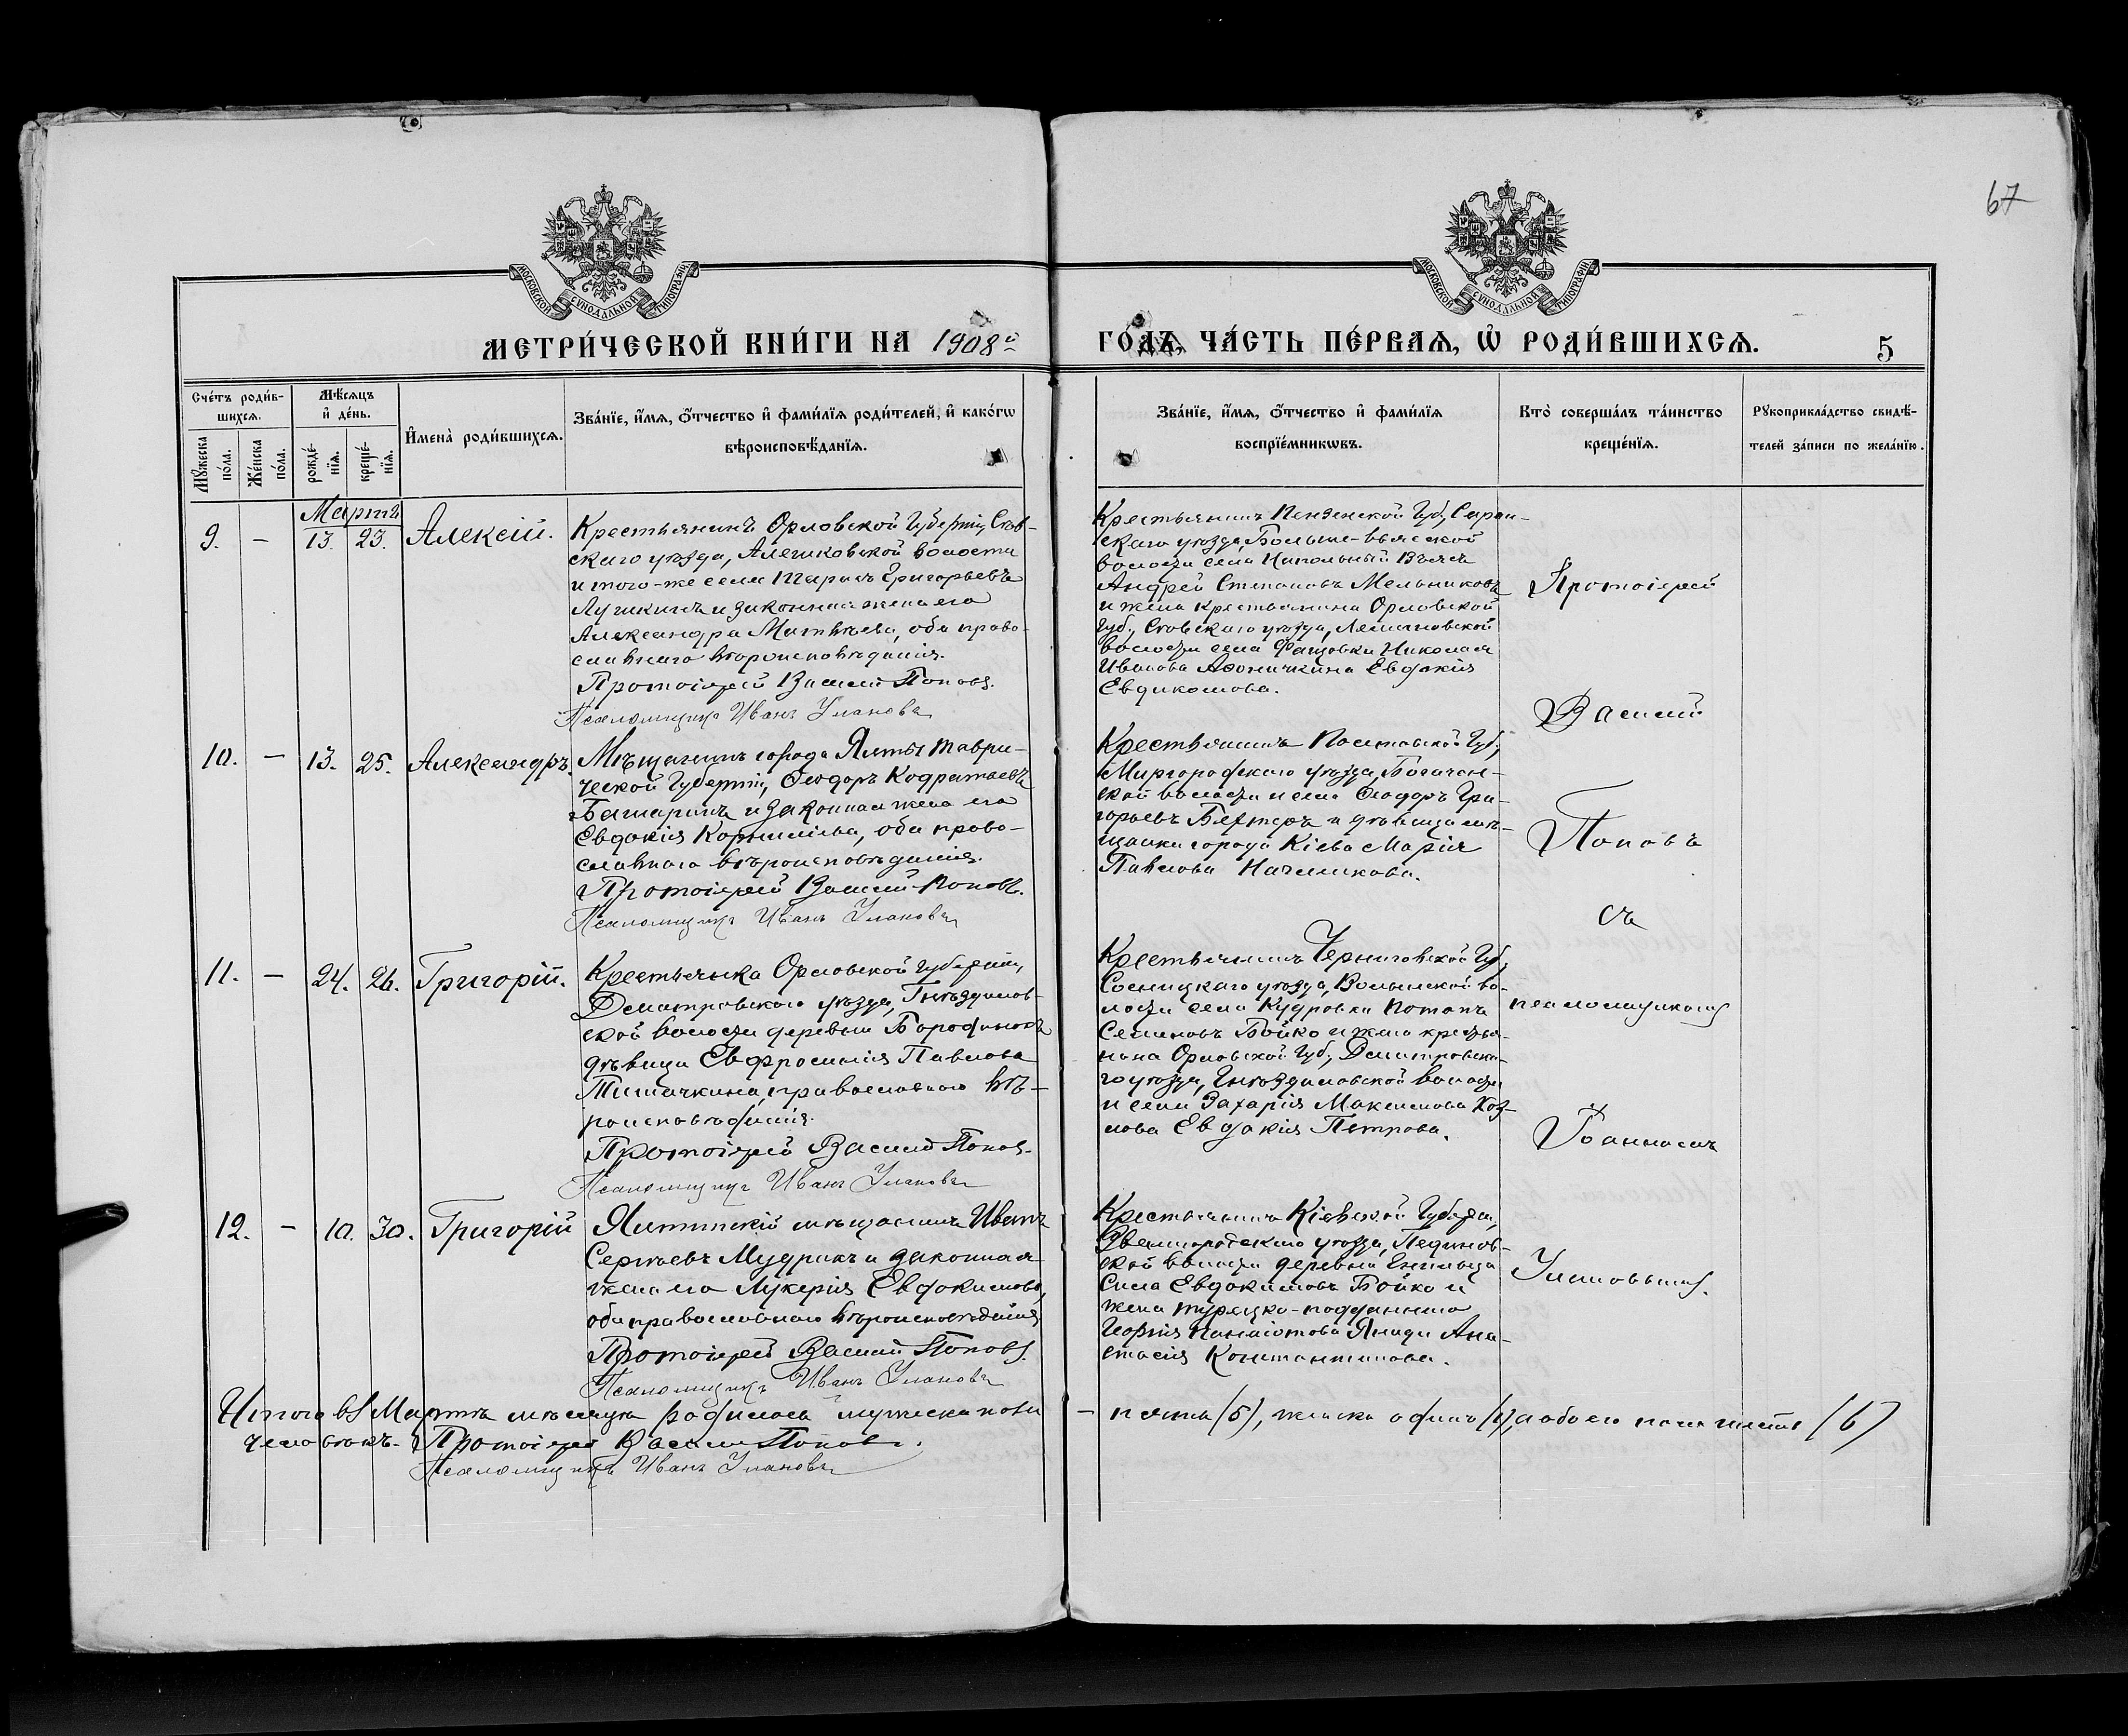 67
МОСКОВСКОЙ СУНОДАЛЬНОЙ ТИПОГРАФІИ
МОСКОВСКОЙ СУНОДАЛЬНОЙ ТИПОГРАФІИ
МЕТРИ́ЧЕСКОЙ КНИ́ГИ НА 1908й
ГО́ДЪ, ЧА́СТЬ ПЕ́РВАѦ, Ѡ҆ РОДИ́ВШИХСѦ.
5
Сче́тъ роди́в-
шихсѧ.
Мꙋ́жеска
по́ла.
Же́нска
по́ла.
Мѣ́сѧцъ
и҆ де́нь.
рожде́-
нїѧ.
креще́-
нїѧ.
И҆мена̀ роди́вшихсѧ.
Зва́нїе, и҆́мѧ, ѻ҆́тчество и҆ фами́лїѧ роди́телей, и҆ како́гѡ
вѣроисповѣ́данїѧ.
Зва́нїе, и҆́мѧ, ѻ҆́тчество и҆ фами́лїѧ
воспрїе́мникѡвъ.
Кто̀ соверша́лъ та́инство
креще́нїѧ.
Рꙋкоприкла́дство свидѣ́-
телей за́писи по жела́нїю.
Мартъ
9. — 13. 23. Алексій.
Крестьянинъ Орловской Губерніи, Сѣв-
скаго уѣзда, Алешковской волости
и того-же села Тарасъ Григорьевъ
Лучкинъ и законная жена его
Александра Матѳѣева, оба право-
славнаго вѣроисповѣданія.
Протоіерей Василій Поповъ.
Псаломщикъ Иванъ Улановъ
Крестьянинъ Пензенской Губ., Саран-
скаго уѣзда, Больше-Вьясской
волости села Напольный Вьясъ
Андрей Степановъ Мельниковъ
и жена крестьянина Орловской
Губ., Сѣвскаго уѣзда,
волости села Николая
Иванова Аѳоничкина Евдокія
Евдокимова.
10. — 13. 25. Александръ.
Мѣщанинъ города Ялты Таври-
ческой Губерніи, Ѳеодоръ Кодратьевъ
Башаринъ и законная жена его
Евдокія Корниліева, оба право-
славнаго вѣроисповѣданія.
Протоіерей Василій Поповъ.
Псаломщикъ Иванъ Улановъ
Крестьянинъ Полтавской Губ.,
Миргородскаго уѣзда, Богачан-
ской волости и села Ѳеодоръ Гри-
горьевъ и дѣвица мѣ-
щанка города Кіева Марія
Павлова
11. — 24. 26. Григорій.
Крестьянка Орловской Губерніи,
Дмитровскаго уѣзда, Гнѣздилов-
ской волости деревни Бородинокъ
дѣвица Евфросинія Павлова
Тишачкина, православнаго вѣ-
роисповѣданія.
Протоіерей Василій Поповъ.
Псаломщикъ Иванъ Улановъ
Крестьянинъ Черниговской Губ.,
Сосницкаго уѣзда, Волынской во-
лости села Кудровки Потапъ
Семеновъ Бойко и жена крестья-
нина Орловской Губ., Дмитровска-
го уѣзда, Гнѣздиловской волости
и села Захарія Максимова Коз-
лова Евдокія Петрова.
12. — 10. 30. Григорій
Ялтинскій мѣщанинъ Иванъ
Сергѣевъ Мудрикъ и законная
жена его Лукерія Евдокимова,
оба православнаго вѣроисповѣданія
Протоіерей Василій Поповъ.
Псаломщикъ Иванъ Улановъ
Крестьянинъ Кіевской Губерніи,
Звенигородскаго уѣзда, Пединов-
ской волости деревни
Сила Евдокимовъ Бойко и
жена турецко-подданнаго
Георгія Панаіотова Яниди Ана-
стасія Константинова.
Протоіерей
Василій
Поповъ
съ
псаломщикомъ
Іоанномъ
Улановымъ.
Итого въ Мартѣ мѣсяцѣ родилось мужеска пола
— пять (5), женска одинъ (1), а обоего пола шесть (6)
человѣкъ. Протоіерей Василій Поповъ.
Псаломщикъ Иванъ Улановъ